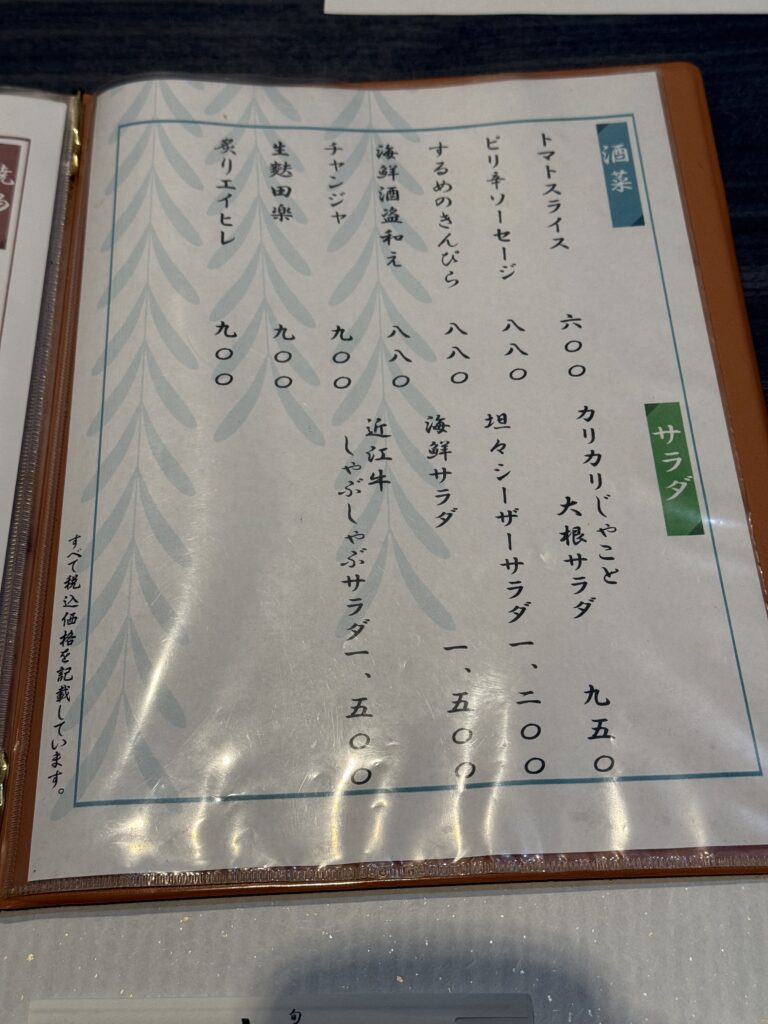 酒菜
トマトスライス 六〇〇
ピリ辛ソーセージ 八八〇
するめのきんぴら 八八〇
海鮮酒盗和え 八八〇
チャンジャ 九〇〇
生麩田楽 九〇〇
炙りエイヒレ 九〇〇
サラダ
カリカリじゃこと
大根サラダ 九五〇
坦々シーザーサラダ 一、二〇〇
海鮮サラダ 一、五〇〇
近江牛
しゃぶしゃぶサラダ 一、五〇〇
すべて税込価格を記載しています。
旬